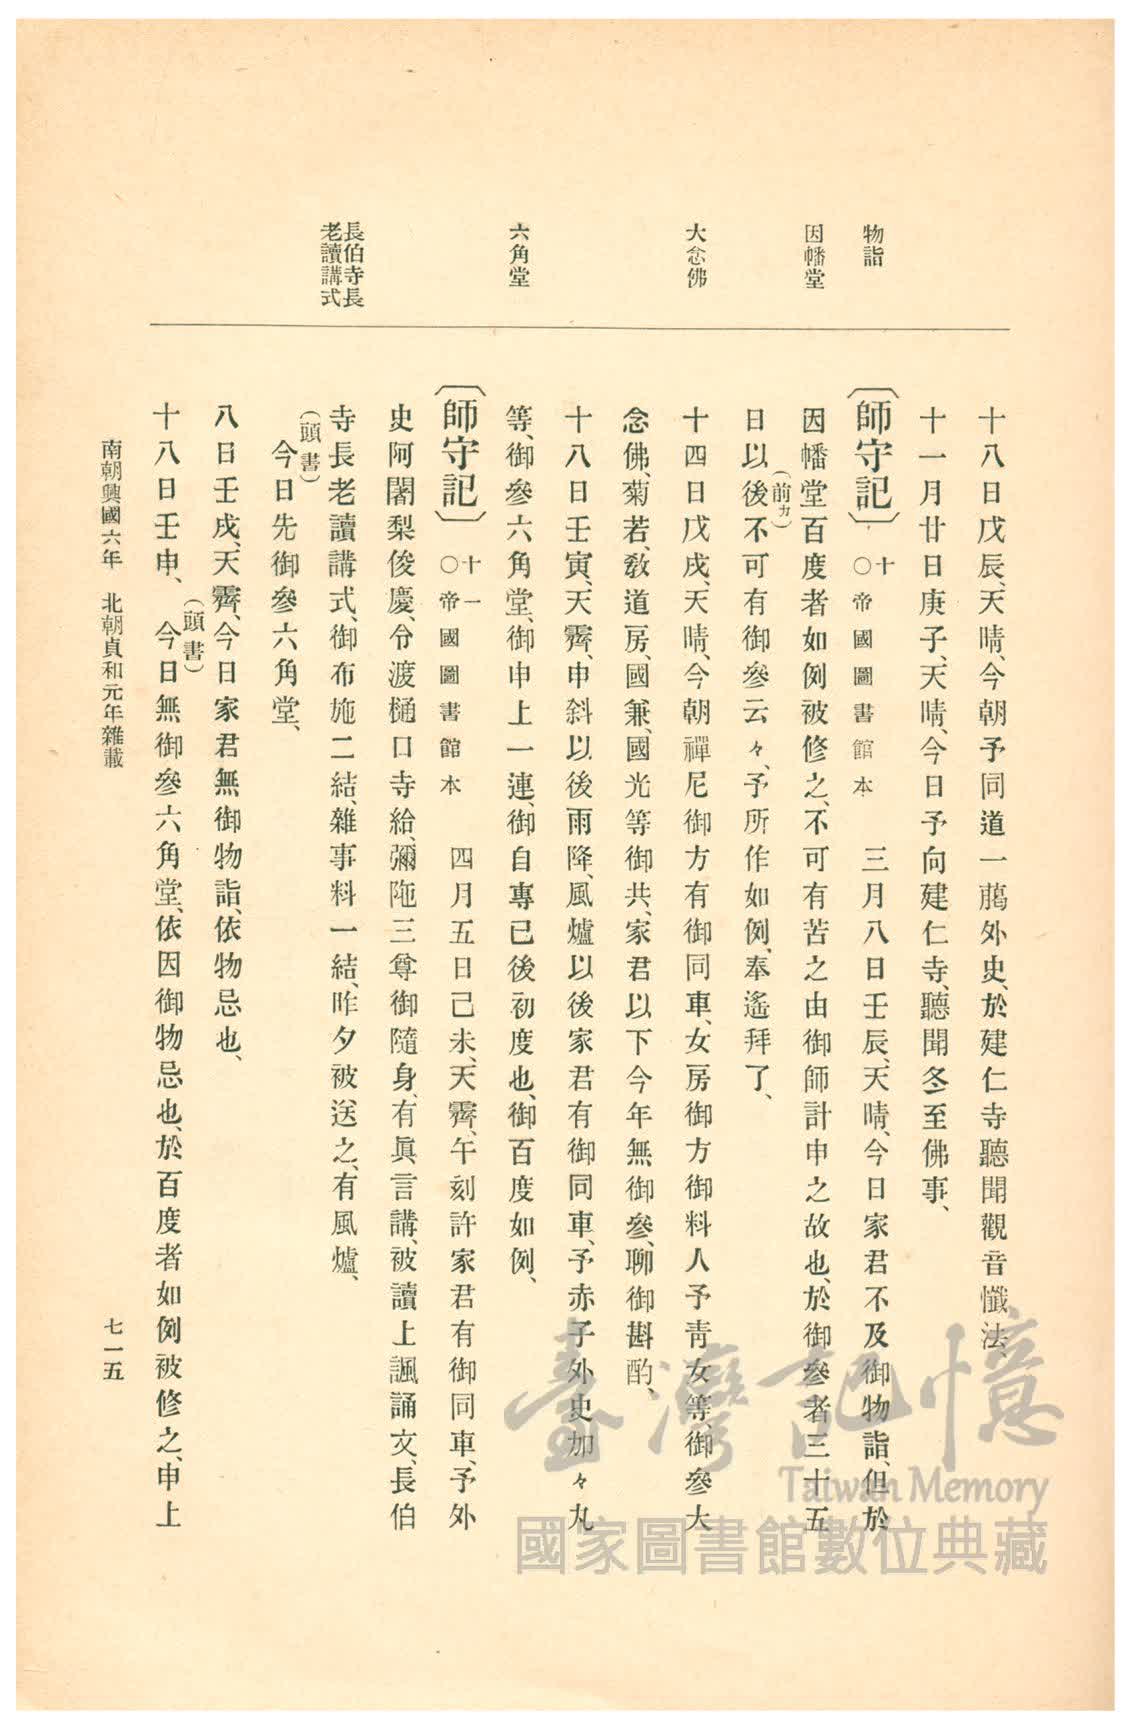 物詣
因幡堂
大念佛
六角堂
長伯寺長
老讀講式
十八日戊辰、天晴、今朝予同道一﨟外史、於建仁寺聽聞觀音懺法、
十一月廿日庚子、天晴、今日予向建仁寺、聽聞冬至佛事、
〔師守記〕十○帝國圖書館本 三月八日壬辰、天晴、今日家君不及御物詣、但於
因幡堂百度者如例被修之、不可有苦之由御師計申之故也、於御參者三十五
日以後(前カ)不可有御參云々、予所作如例、奉遙拜了、
十四日戊戌、天晴、今朝禪尼御方有御同車、女房御方御料人予靑女等、御參大
念佛、菊若、敎道房、國兼、國光等御共、家君以下今年無御參、聊御斟酌、
十八日壬寅、天霽、申斜以後雨降、風爐以後家君有御同車、予赤子外史加々丸
等、御參六角堂、御申上一連、御自專已後初度也、御百度如例、
〔師守記〕十一○帝國圖書館本 四月五日己未、天霽、午刻許家君有御同車、予外
史阿闍梨俊慶、令渡樋口寺給、彌陁三尊御隨身、有眞言講、被讀上諷誦文、長伯
寺長老讀講式、御布施二結、雜事料一結、昨夕被送之、有風爐、
(頭書)
今日先御參六角堂、
八日壬戌、天霽、今日家君無御物詣、依物忌也、
十八日壬申、(頭書)今日無御參六角堂、依因御物忌也、於百度者如例被修之、申上
南朝興國六年 北朝貞和元年雜載
七一五
臺灣記憶
Taiwan Memory
國家圖書館數位典藏